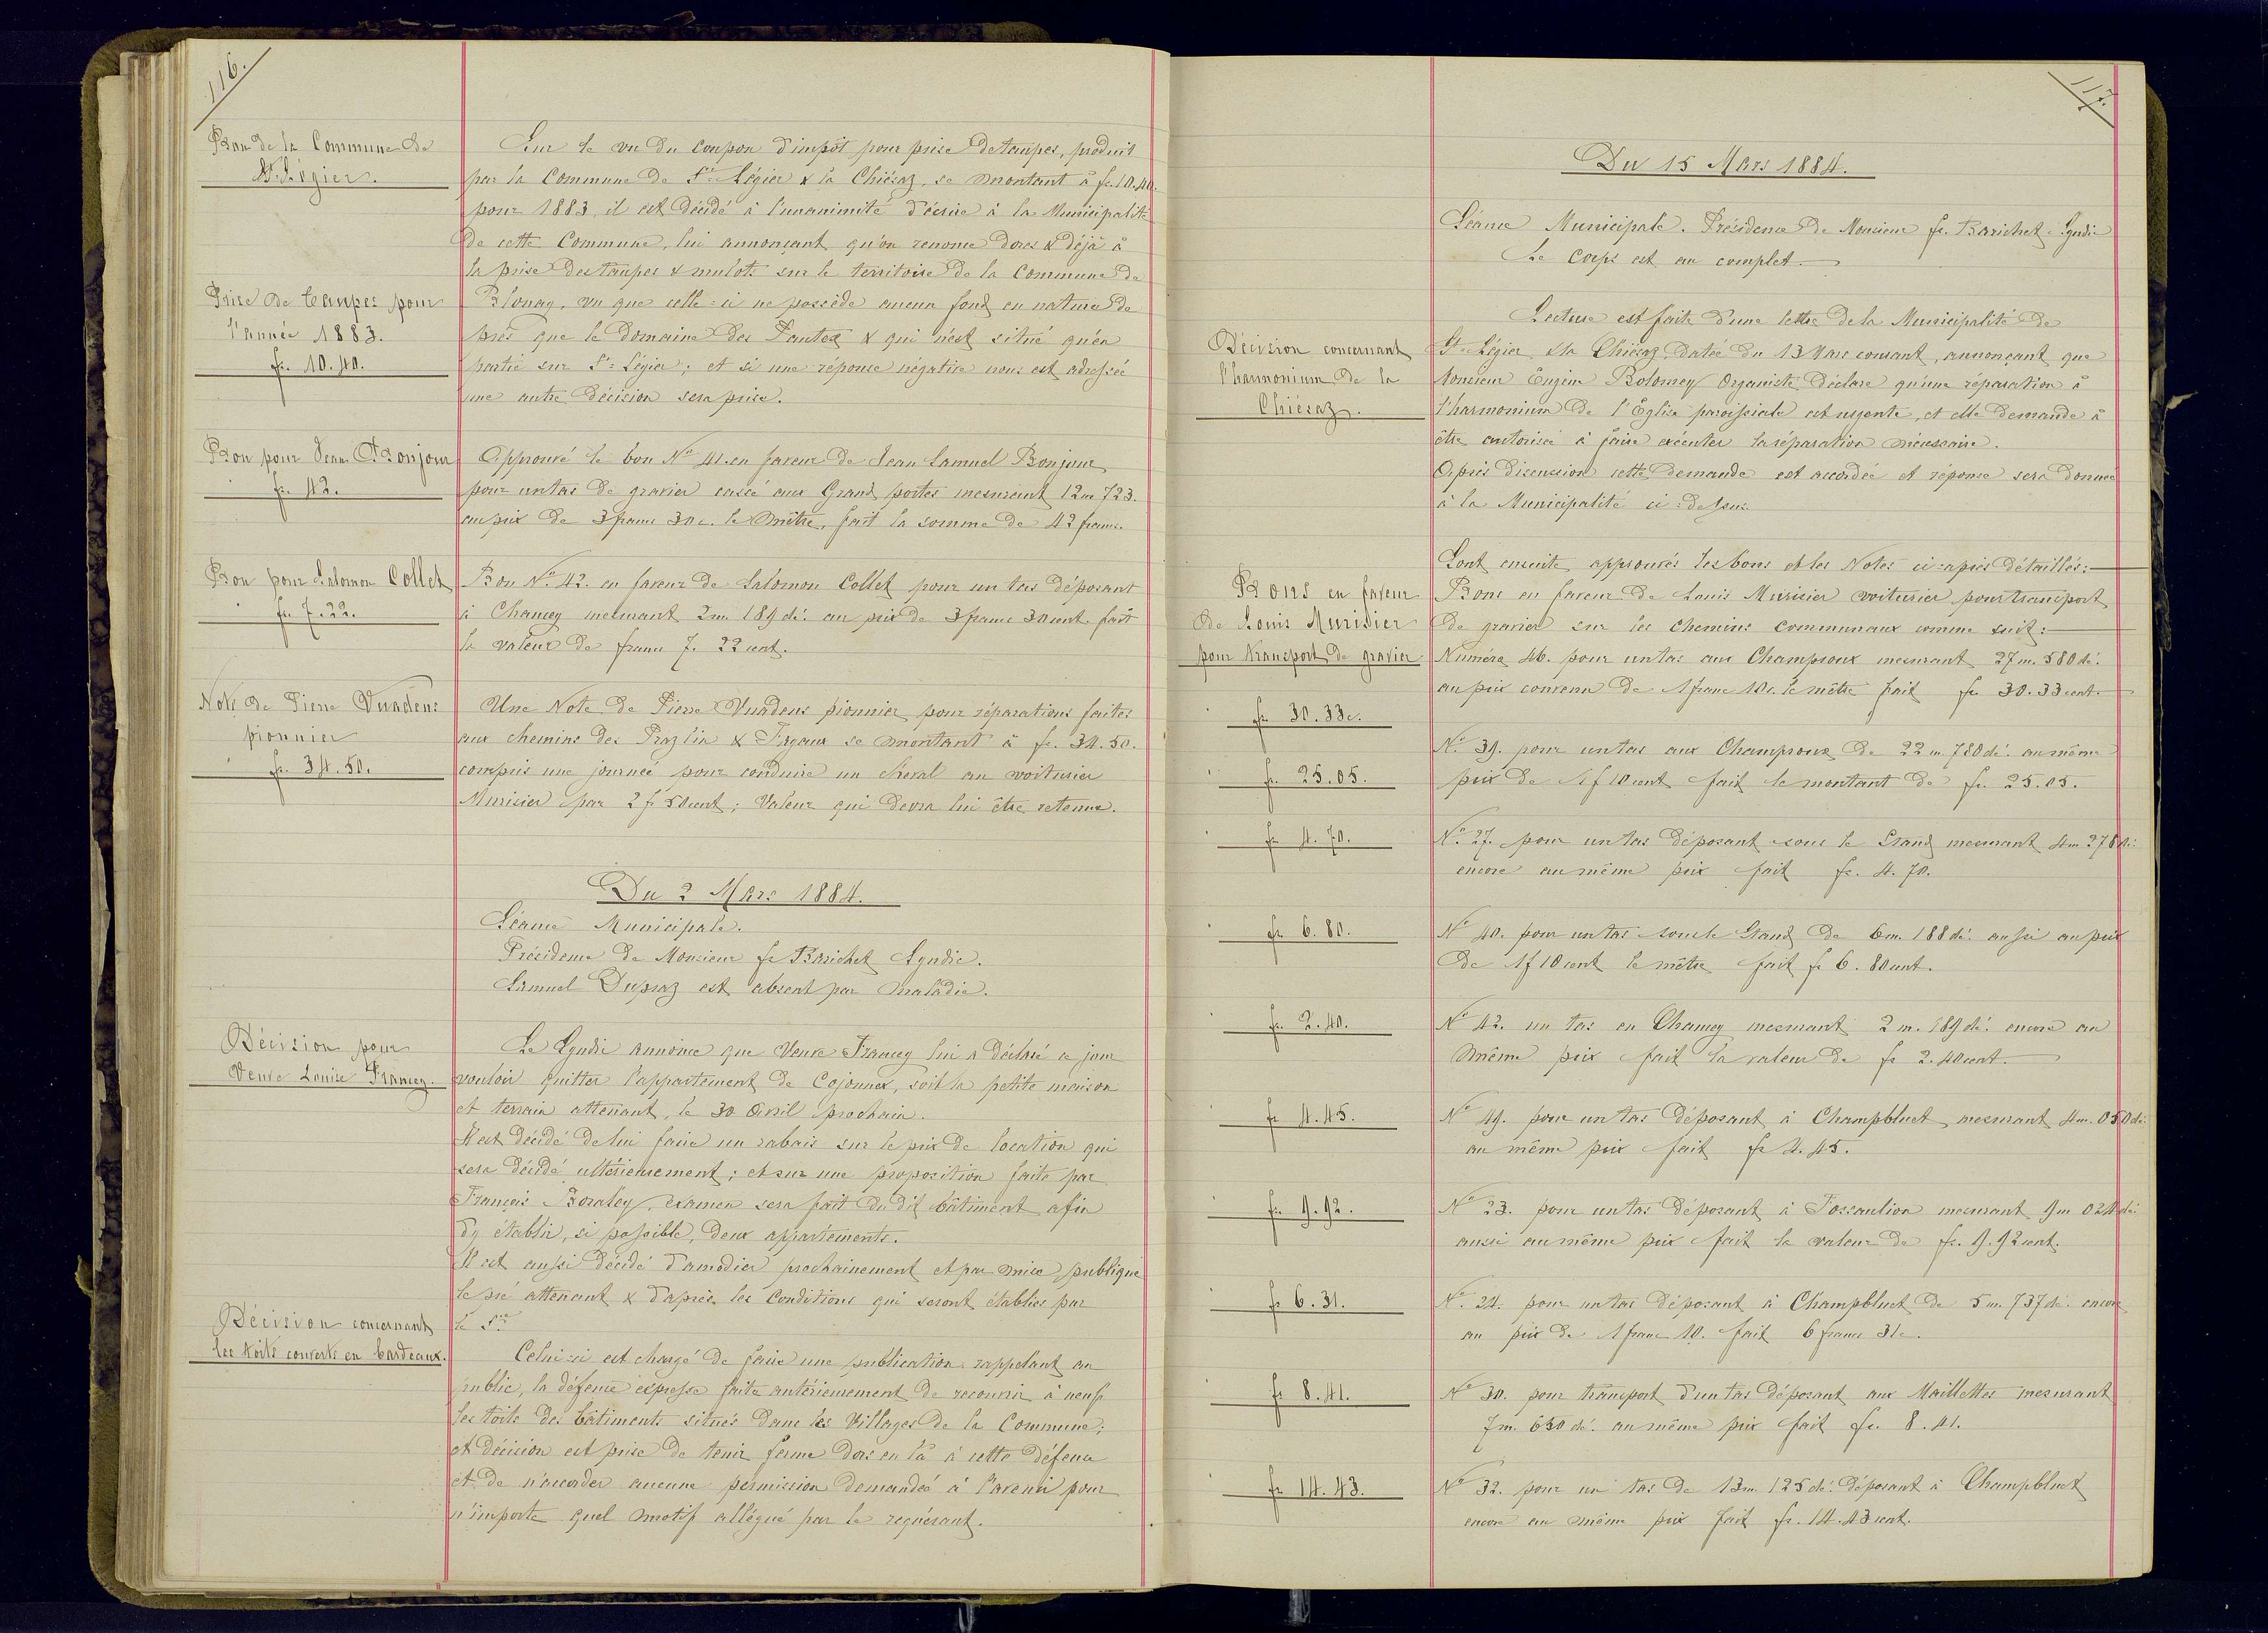 116.
Bon de la Commune de
St Légier.
Prise de taupes pour
l'année 1883.
fr. 10.40.
Sur le vu du coupon d'impôt pour prise de taupes, produit
par la Commune de St Légier & la Chiésaz, se montant à fr. 10.40.
pour 1883, il est décidé à l'unanimité d'écrire à la Municipalité
de cette Commune, lui annonçant qu'on renonce dores & déjà à
la prise des taupes & mulots sur le territoire de la Commune de
Blonay, vu que celle-ci ne possède aucun fond en nature de
prés que le domaine des Pautex & qui n'est situé qu'en
partie sur St Légier; et si une réponse négative nous est adressée
une autre décision sera prise.
Bon pour Jean Bonjour
fr. 42.
Approuvé le bon No 41. en faveur de Jean Samuel Bonjour
pour un tas de gravier cassé aux Grand portes mesurant 12m 723.
au prix de 3 francs 30 c. le mètre, fait la somme de 42 francs.
Bon pour Salomon Collet
fr. 7.22.
Bon No 42. en faveur de Salomon Collet pour un tas déposant
à Chancy mesurant 2m. 189 dé. au prix de 3 francs 30 cent. fait
la valeur de francs 7. 22 cent.
Note de Pierre Vuadens
pionnier
fr. 34.50.
Une Note de Pierre Vuadens pionnier pour réparations faites
aux chemins des Prazlin & Fayaux se montant à fr. 34.50.
compris une journée pour conduire un cheval au voiturier
Murisier par 2 fr 50 cent; Valeur qui devra lui être retenue.
Du 2 Mars 1884.
Séance Municipale.
Présidence de Monsieur fs Barichet Syndic.
Samuel Dupraz est absent par maladie.
Décision pour
Veuve Louise Francey.
Le Syndic annonce que Veuve Francey lui a déclaré ce jour
vouloir quitter l'appartement de Cojonnex, soit la petite maison
et terrain attenant, le 30 Avril prochain.
Il est décidé de lui faire un rabais sur le prix de location qui
sera décidé ultérieurement; et sur une proposition faite par
François Boraley, examen sera fait du dit bâtiment afin
d'y établir, si possible, deux appartements.
Il est aussi décidé d'amodier prochainement et par mise publique
le pré attenant & d'après les conditions qui seront établies par
le Sic
Décision concernant
les toits couverts en bardeaux.
Celui-ci est chargé de faire une publication rappelant au
public, la défense expresse faite antérieurement de recouvrir à neuf
les toits des bâtiments situés dans les Villages de la Commune;
et décision est prise de tenir ferme dors en là à cette défense
et de n'accorder aucune permission demandée à l'avenir pour
n'importe quel motif allégué par le requérant.
117.
Du 15 Mars 1884.
Séance Municipale. Présidence de Monsieur fs. Barichet Syndic
Le corps est au complet.
Décision concernant
l'harmonium de la
Chiésaz.
Lecture est faite d'une lettre de la Municipalité de
St Légier & la Chiésaz datée du 13 Mars courant, annonçant que
Monsieur Eugène Bolomey Organiste déclare qu'une réparation à
l'harmonium de l'Eglise paroissiale est urgente, et elle demande à
être autorisée à faire exécuter la réparation nécessaire.
Après discussion cette demande est accordée et réponse sera donnée
à la Municipalité ci-dessus.
Sont ensuite approuvés les bons et les Notes ci-après détaillés:
Bons en faveur
de Louis Murisier
pour transport de gravier
Bons en faveur de Louis Murisier voiturier pour transport
de gravier sur les chemins communaux comme suit:
Numéro 46. pour un tas aux Champsoux mesurant 27m. 580 dé.
au prix convenu de 1 franc 10 c. le mètre fait fr 30.33 cent.
fr 30.33c.
No 39. pour un tas aux Champsoux de 22 m. 780 dé. au même
prix de 1 f 10 cent fait le montant de fr. 25.05.
fr. 25.05.
No 27. pour un tas déposant sous le Stand mesurant 4m 278 dé.
encore au même prix fait fr. 4.70.
fr 4.70.
No 40. pour un tas sous le Stand de 6m. 188 dé. aussi au prix
de 1 f 10 cent le mètre fait fr 6.80 cent.
fr 6.80.
No 42. un tas en Chancy mesurant 2 m. 189 dé. encore au
même prix fait la valeur de fr 2.40 cent.
fr. 2.40.
No 49. pour un tas déposant à Champbluet mesurant 4m. 050 dé.
au même prix fait fr 4.45.
fr 4.45.
No 23. pour un tas déposant à Tossaulion mesurant 9m 024 dé.
aussi au même prix fait la valeur de fr. 9.92 cent.
fr. 9.92.
No. 24. pour un tas déposant à Champbluet de 5m. 737 dé. encore
au prix de 1 franc 10. fait 6 francs 31c.
fr 6.31.
No 30. pour transport d'un tas déposant aux Maillettes mesurant
7m. 650 dé. au même prix fait fr. 8.41.
fr 8.41.
No 32. pour un tas de 13m. 125 dé. déposant à Champbluet
encore au même prix fait fr. 14.43 cent.
fr 14.43.